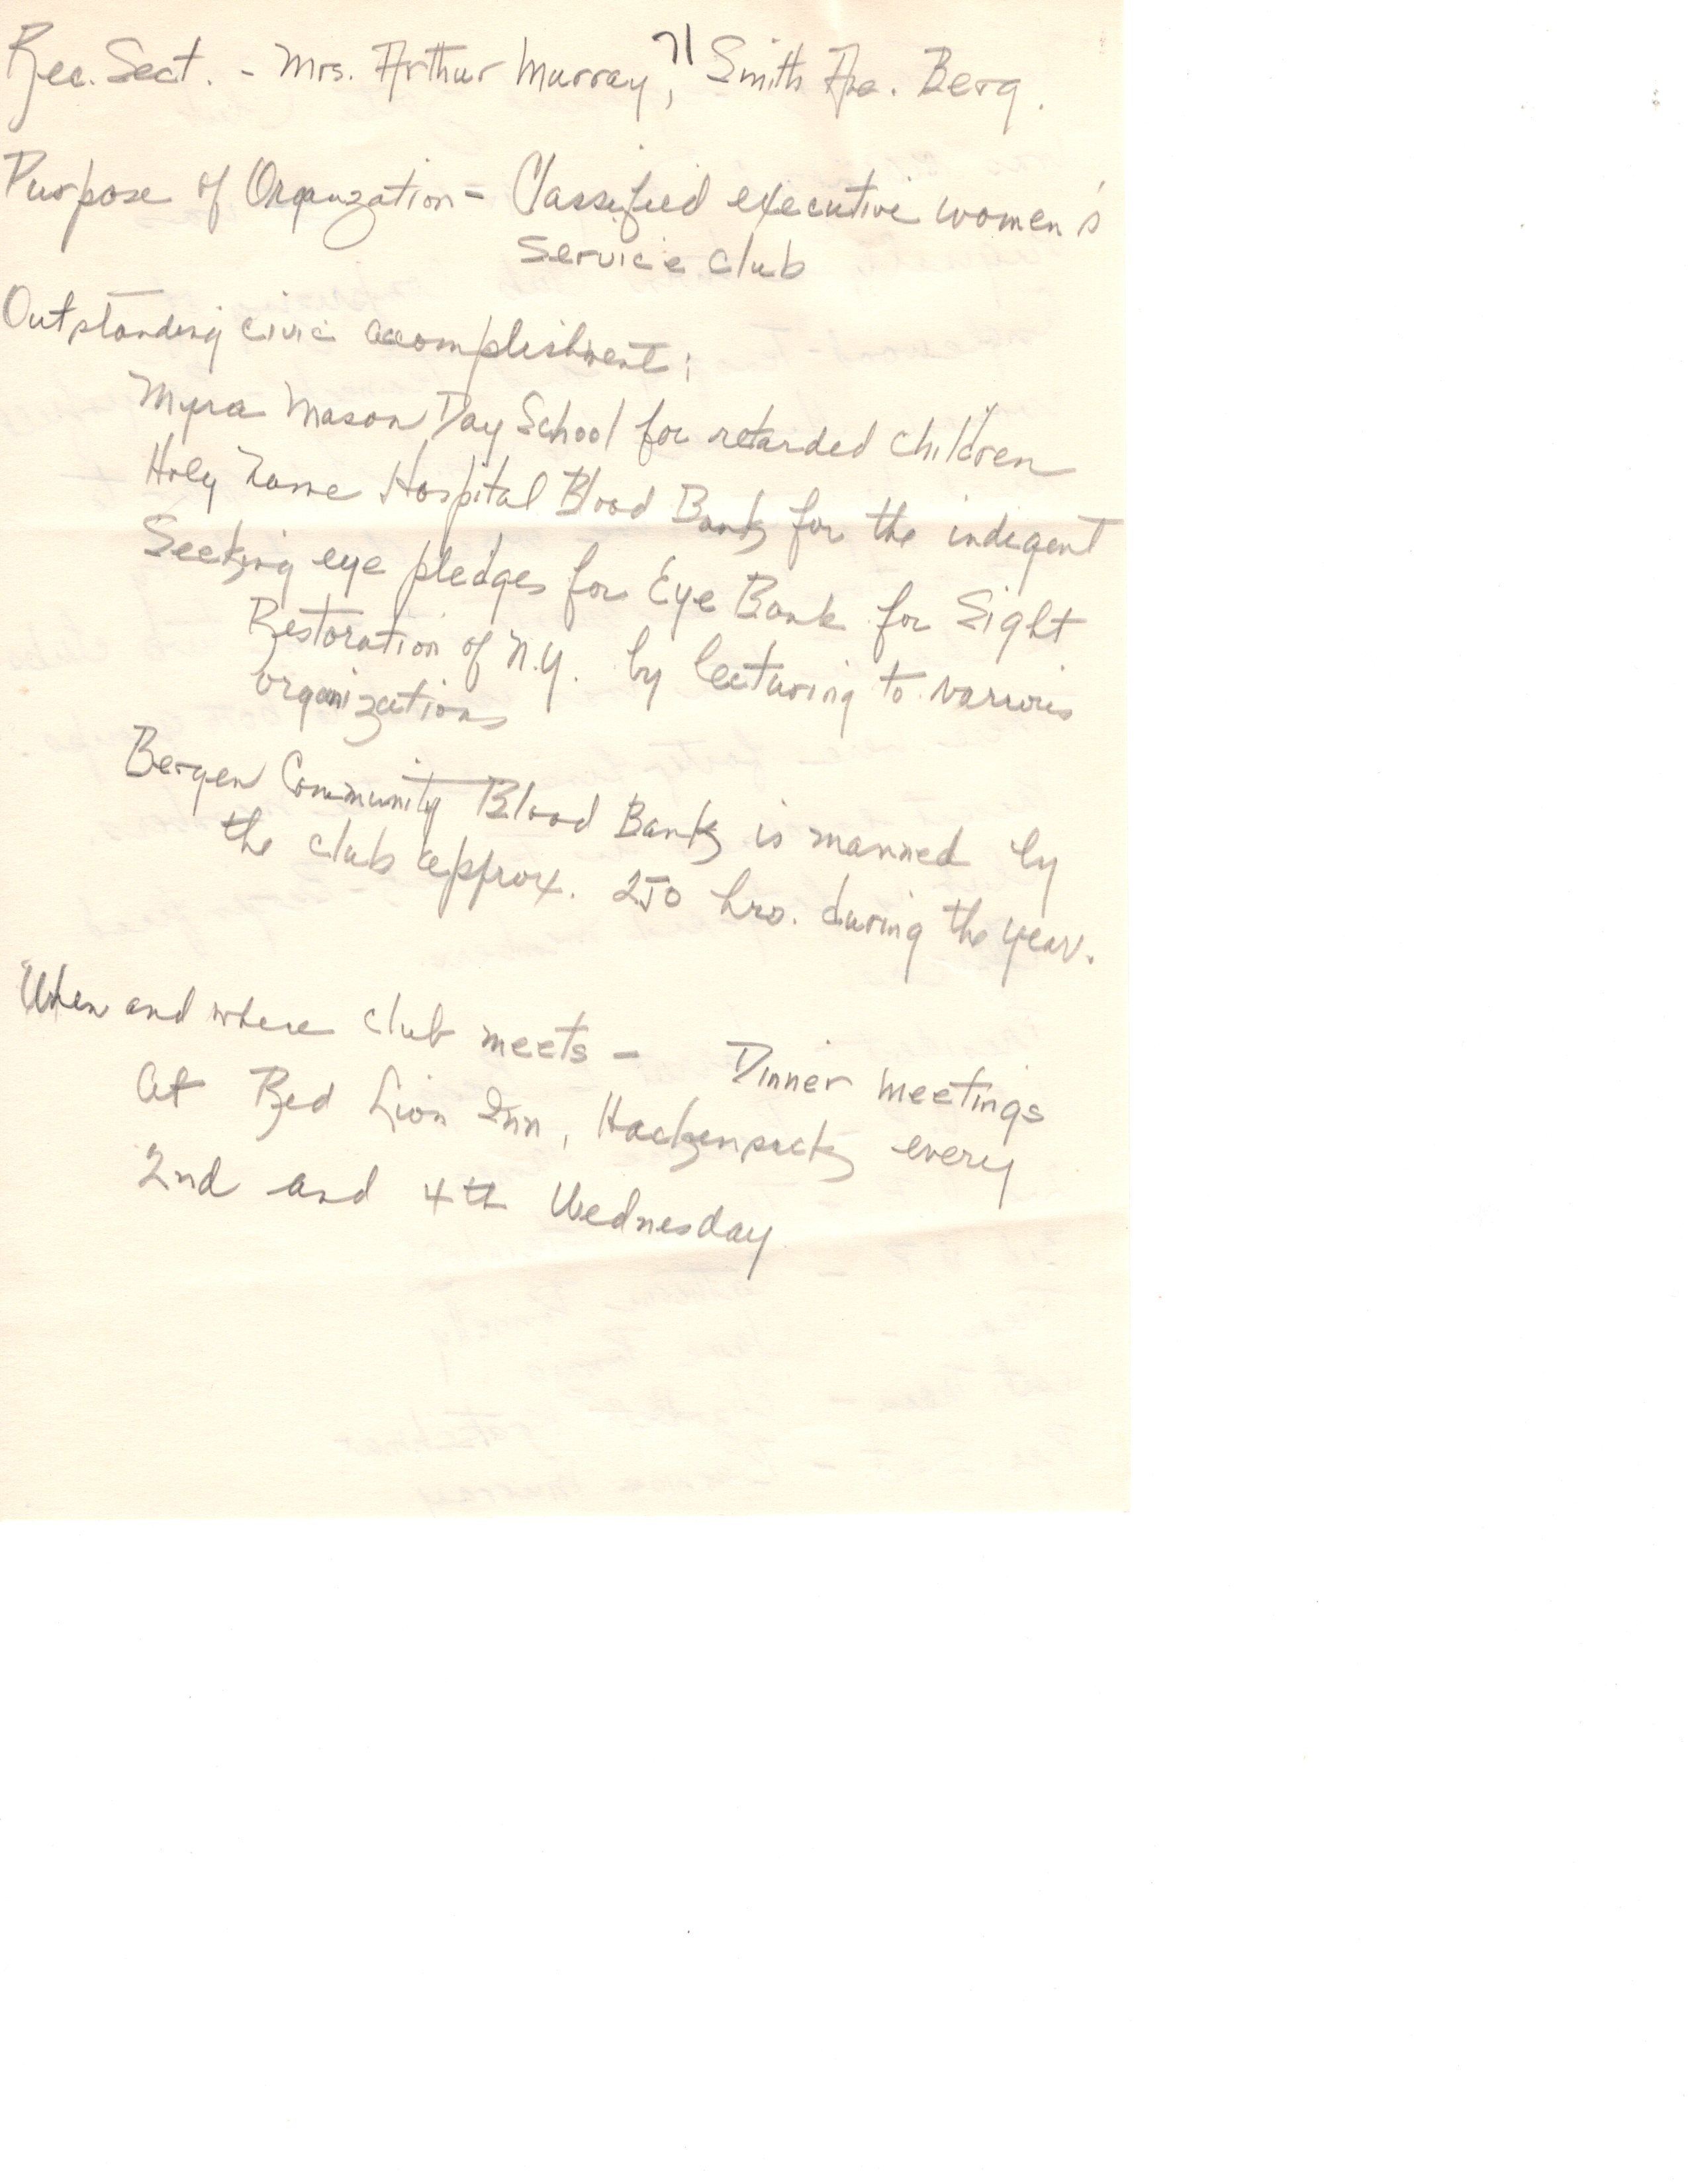 Rec. Sect. - Mrs. Arthur Murray, 71 Smith Ave. Berg.
Purpose of Organization - Classified executive women's
Service Club
Outstanding civic accomplishment:
Myra Mason Day School for retarded children
Holy Name Hospital Blood Bank for the indigent
Seeking eye pledges for Eye Bank for Sight
Restoration of N.Y. by lecturing to various
organizations
Bergen Community Blood Bank is manned by
the club approx. 250 hrs. during the year.
When and where club meets - Dinner meetings
at Red Lion Inn, Hackensack, every
2nd and 4th Wednesday